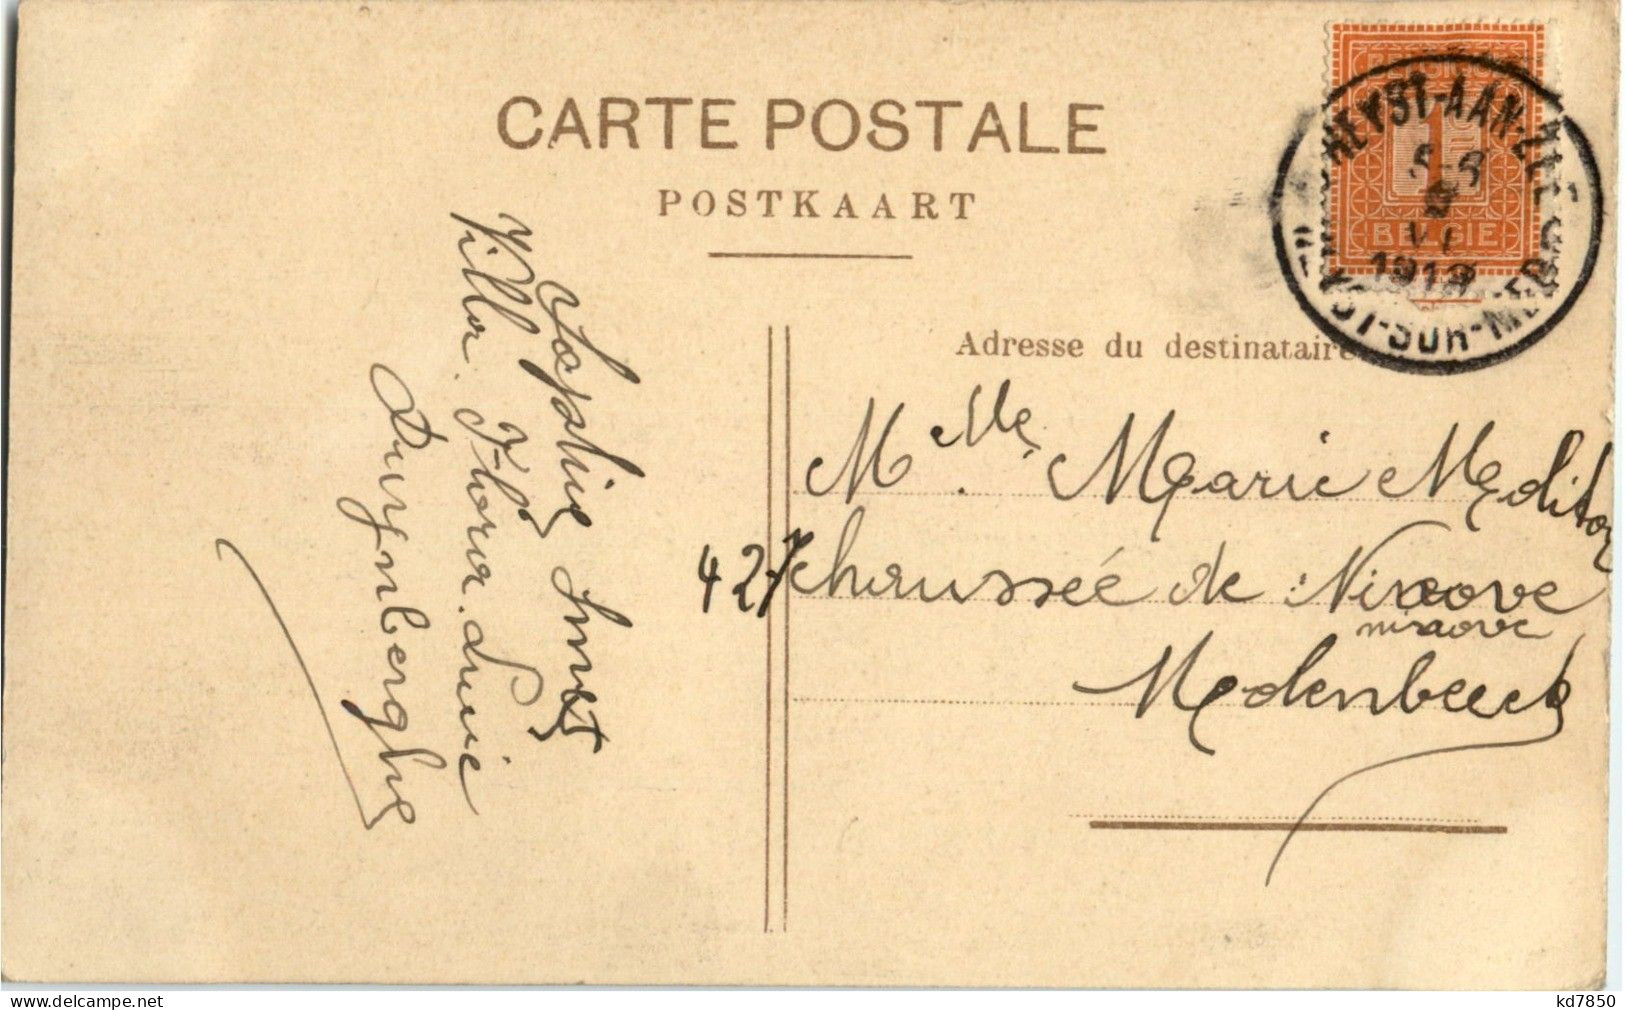 CARTE POSTALE
POSTKAART
BELGIQUE
1
BELGIE
HEYST-AAN-ZEE
HEYST-SUR-MER
VI
Adresse du destinataire
Mlle. Marie Meditor
427 chaussée de Ninove
ninove
Molenbeeck
Sophie Smets
Villa Flora
Duynberghe
www.delcampe.net
kd7850